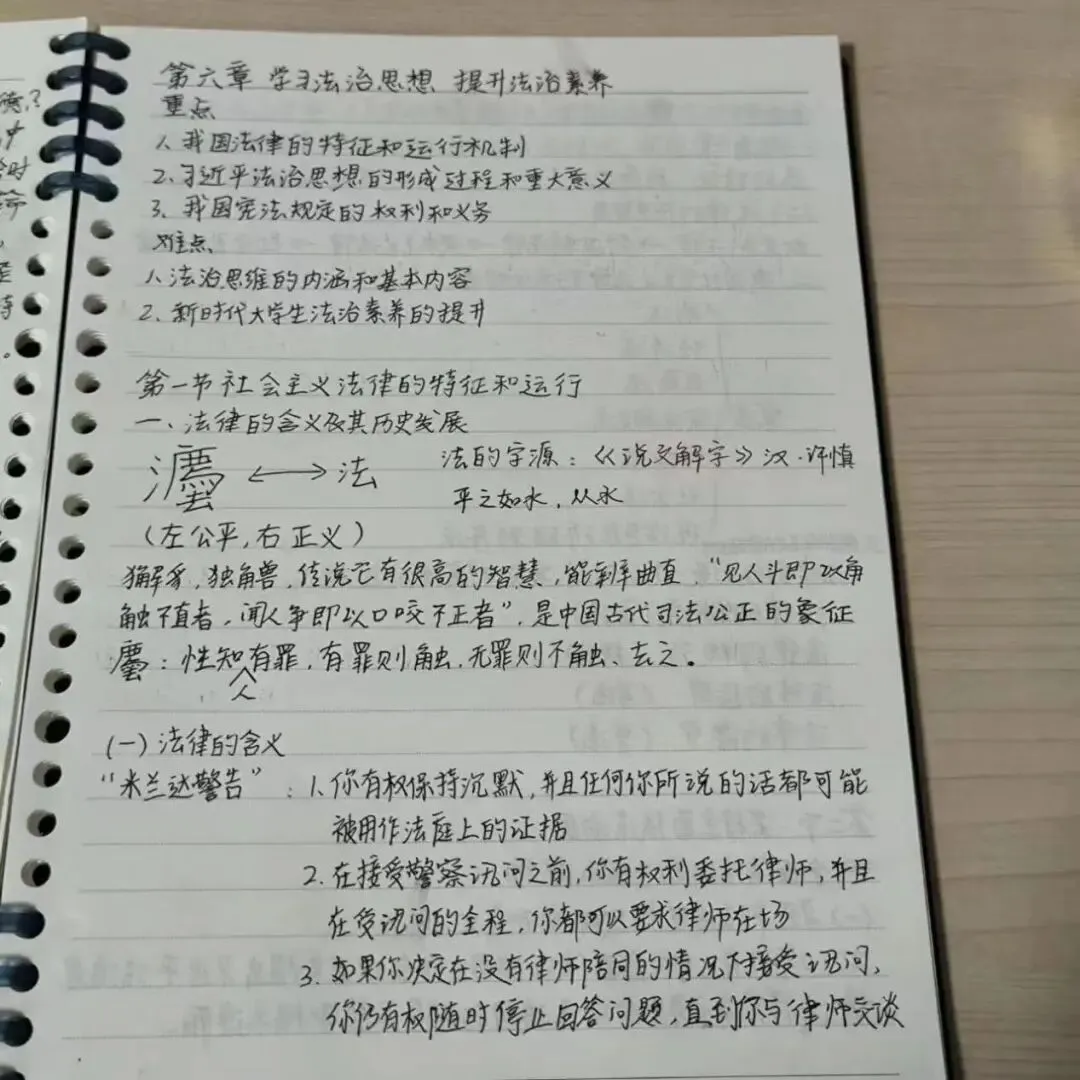 第六章 学习法治思想 提升法治素养
重点
1. 我国法律的特征和运行机制
2. 习近平法治思想的形成过程和重大意义
3. 我国宪法规定的权利和义务
难点
1. 法治思维的内涵和基本内容
2. 新时代大学生法治素养的提升
第一节 社会主义法律的特征和运行
一、法律的含义及其历史发展
灋 ←→ 法 法的字源：《说文解字》汉·许慎
平之如水，从水
（左公平，右正义）
獬豸，独角兽，传说它有很高的智慧，能辨曲直，“见人斗即以角
触不直者，闻人争即以口咬不正者”，是中国古代司法公正的象征
：性知人有罪，有罪则触，无罪则不触、去之。
（一）法律的含义
“米兰达警告”：1. 你有权保持沉默，并且任何你所说的话都可能
被用作法庭上的证据
2. 在接受警察讯问之前，你有权利委托律师，并且
在受讯问的全程，你都可以要求律师在场
3. 如果你决定在没有律师陪同的情况下接受讯问，
你仍有权随时停止回答问题，直到你与律师交谈